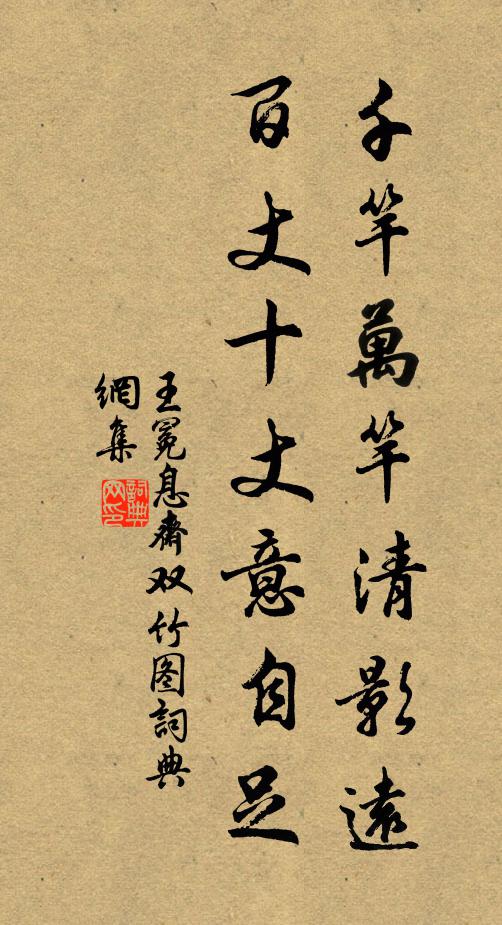 千竿萬竿清影遠
百丈十丈意自足
王冕息齋双竹图詞典
網集
詞典
网印